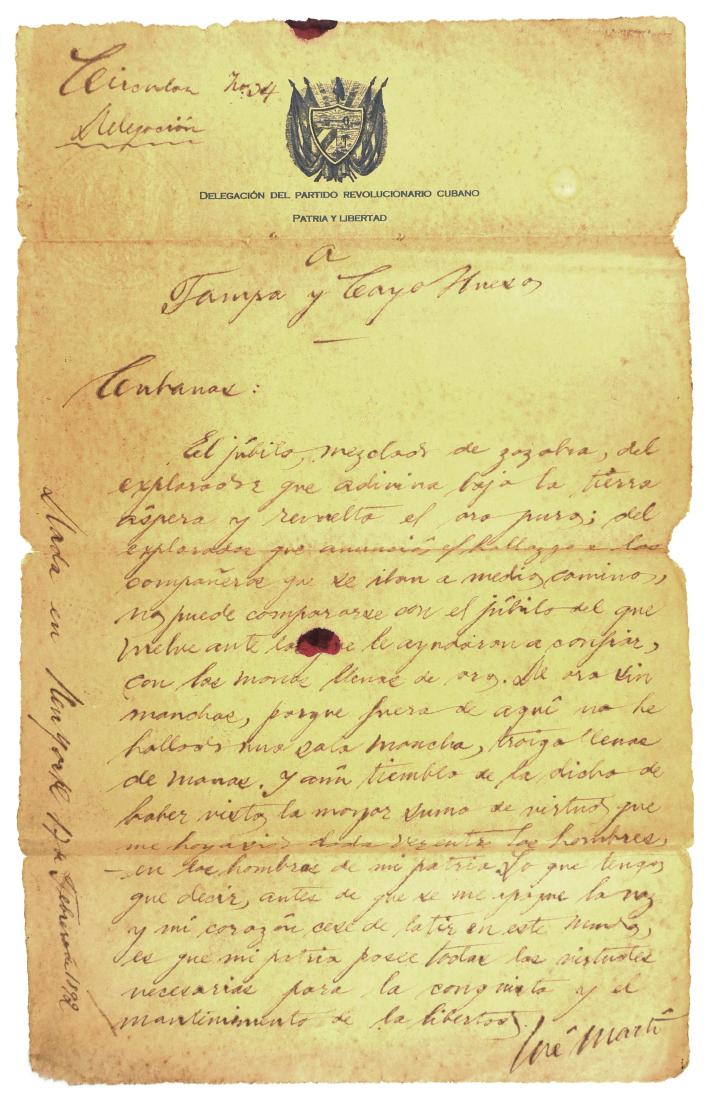 Circular No. 24
Delegación
DELEGACIÓN DEL PARTIDO REVOLUCIONARIO CUBANO
PATRIA Y LIBERTAD
a
Tampa y Cayo Hueso
Cubanos:
El júbilo, mezclado de zozobra, del
explorador que adivina bajo la tierra
áspera y revuelta el oro puro; del
explorador que anunció el hallazgo a los
compañeros que se iban a medio camino,
no puede compararse con el júbilo del que
vuelve ante los que le ayudaron a confiar,
con las manos llenas de oro. De oro sin
manchas, porque fuera de aquí no he
hallado una sola mancha, traigo llenas
de manos. Y aún tiemblo de la dicha de
haber visto la mayor suma de virtud que
me haya sido dada ver entre los hombres,
– en los hombres de mi patria. Lo que tengo
que decir, antes de que se me apague la voz
y mi corazón cese de latir en este mundo,
es que mi patria posee todas las virtudes
necesarias para la conquista y el
mantenimiento de la libertad.
José Martí
Dada en New York 17 de Febrero de 1892